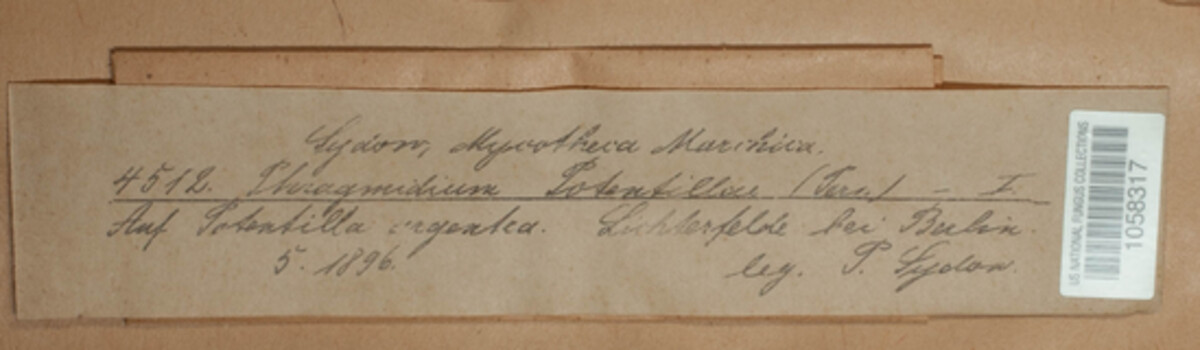 Sydow, Mycotheca Marchica.
4512. Phragmidium Potentillae (Pers.) — I.
Auf Potentilla argentea. Lichterfelde bei Berlin.
5. 1896. leg. P. Sydow.
US NATIONAL FUNGUS COLLECTIONS
1058317